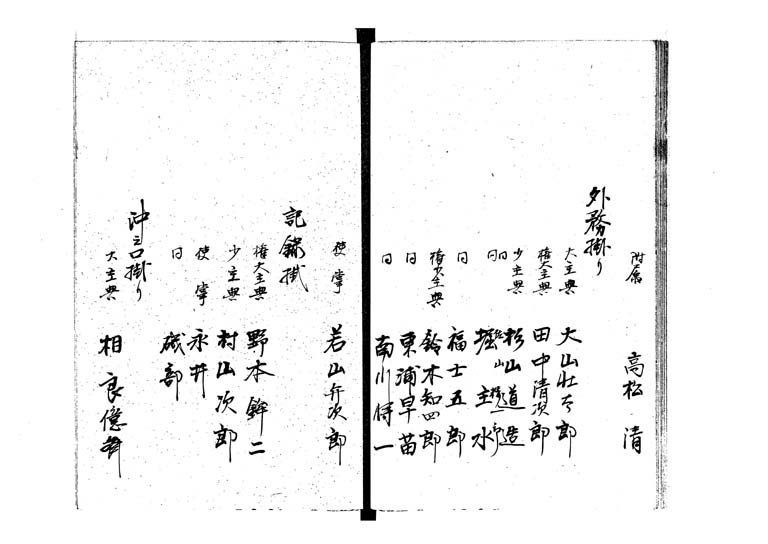 附属 高松 清
外務掛り
大主典 大山壮太郎
権大主典 田中清次郎
少主典 杉山道造
同 堀 主水
同 福士五郎
権少主典 鈴木知四郎
同 東浦早苗
同 南川 一
使掌 若山弁次郎
記録掛
権大主典 野本鉾二
少主典 村山次郎
使掌 永井
同 磯部
沖之口掛り
大主典 相良億